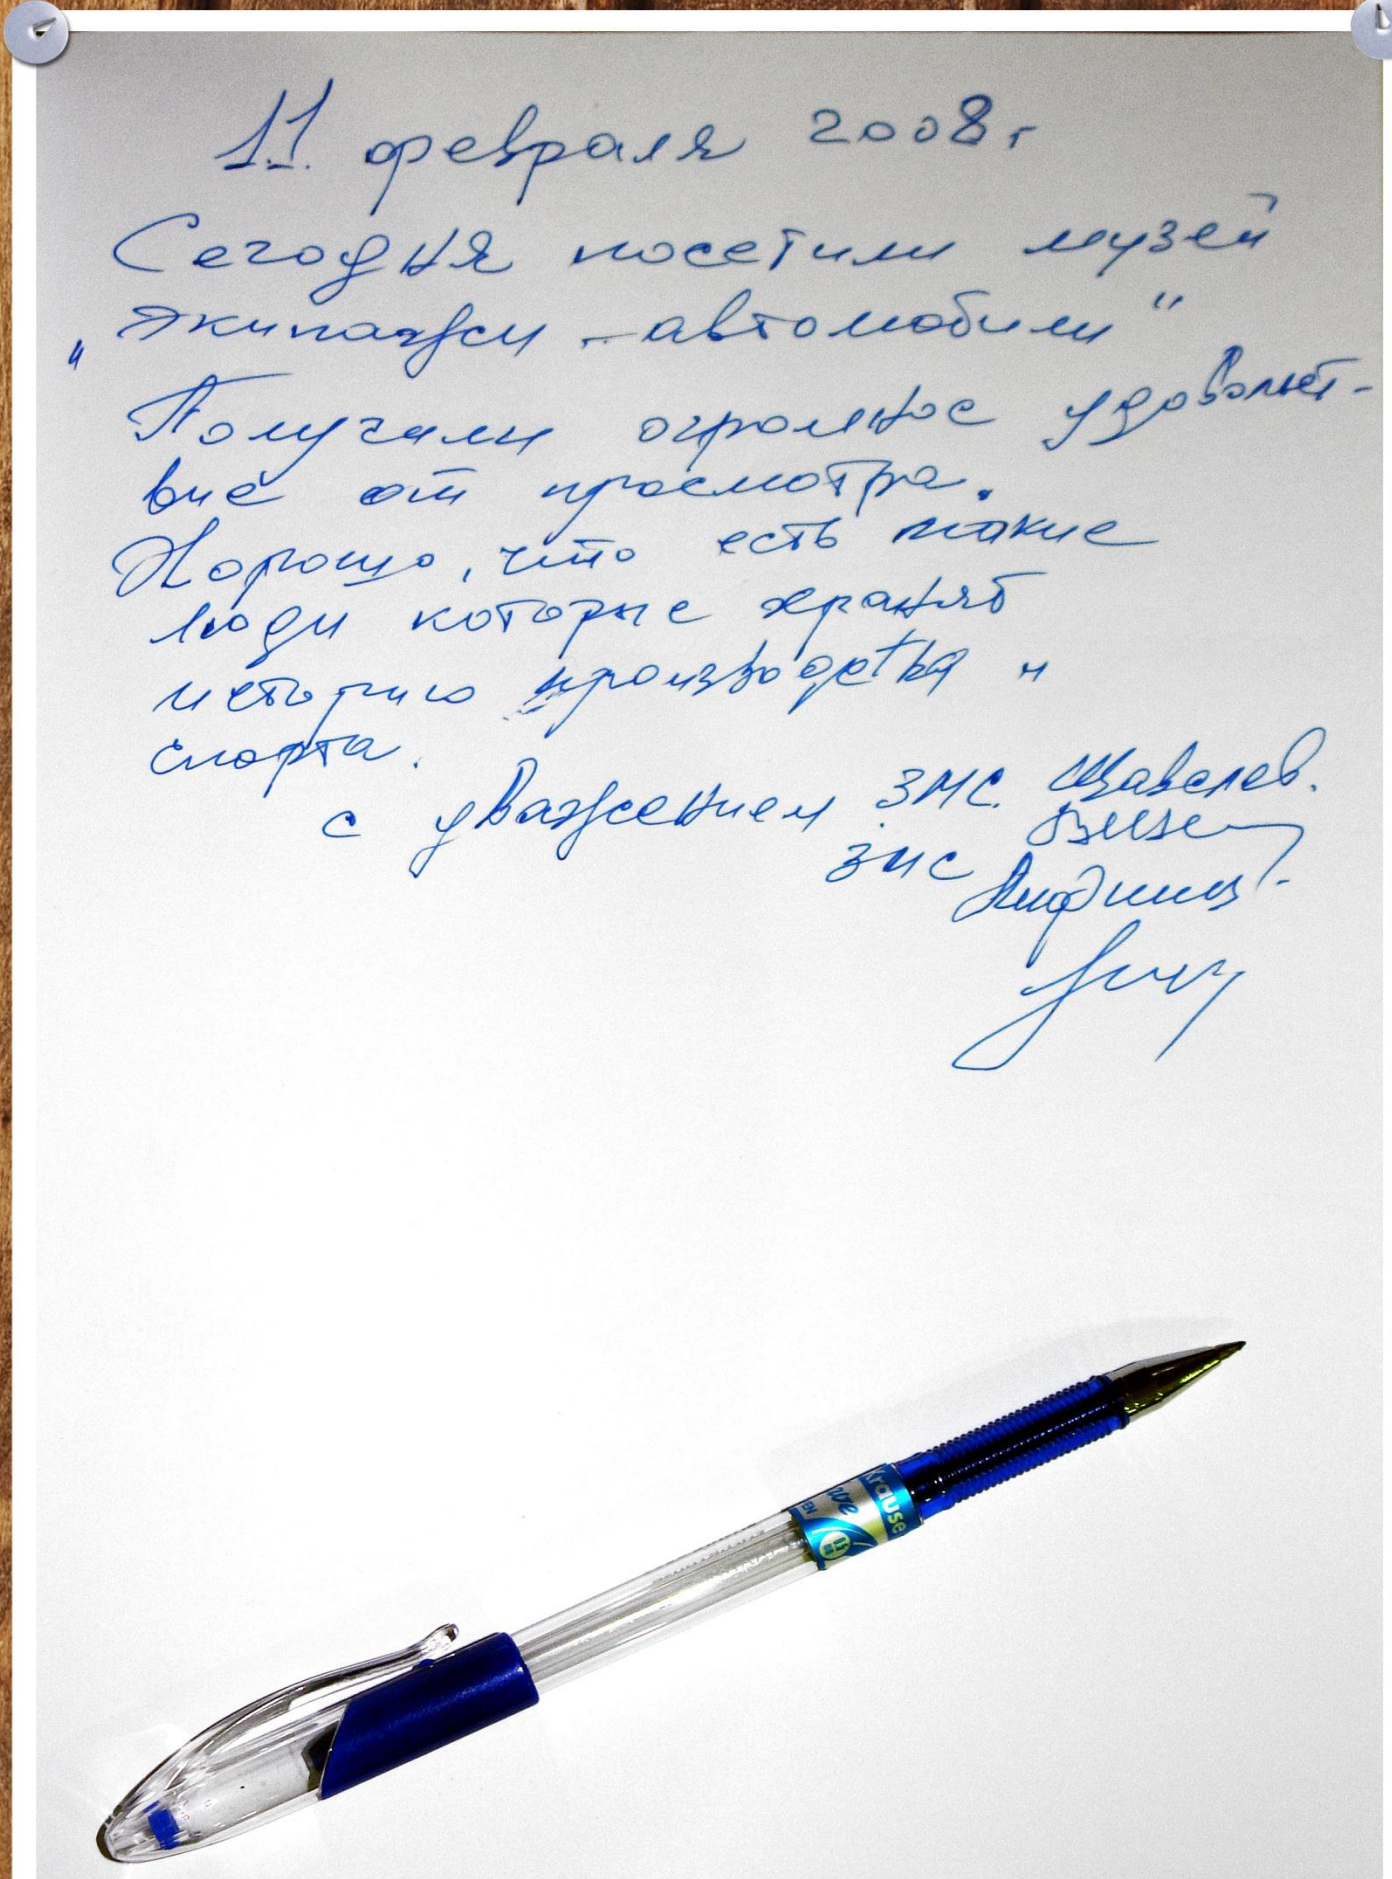 11 февраля 2008г
Сегодня посетили музей
„Экипажи-автомобили"
Получили огромное удовольст-
вие от просмотра.
Хорошо, что есть такие
люди которые хранят
историю производства и
спорта.
с уважением ЗМС. Щавелев.
ЗМС
Krause